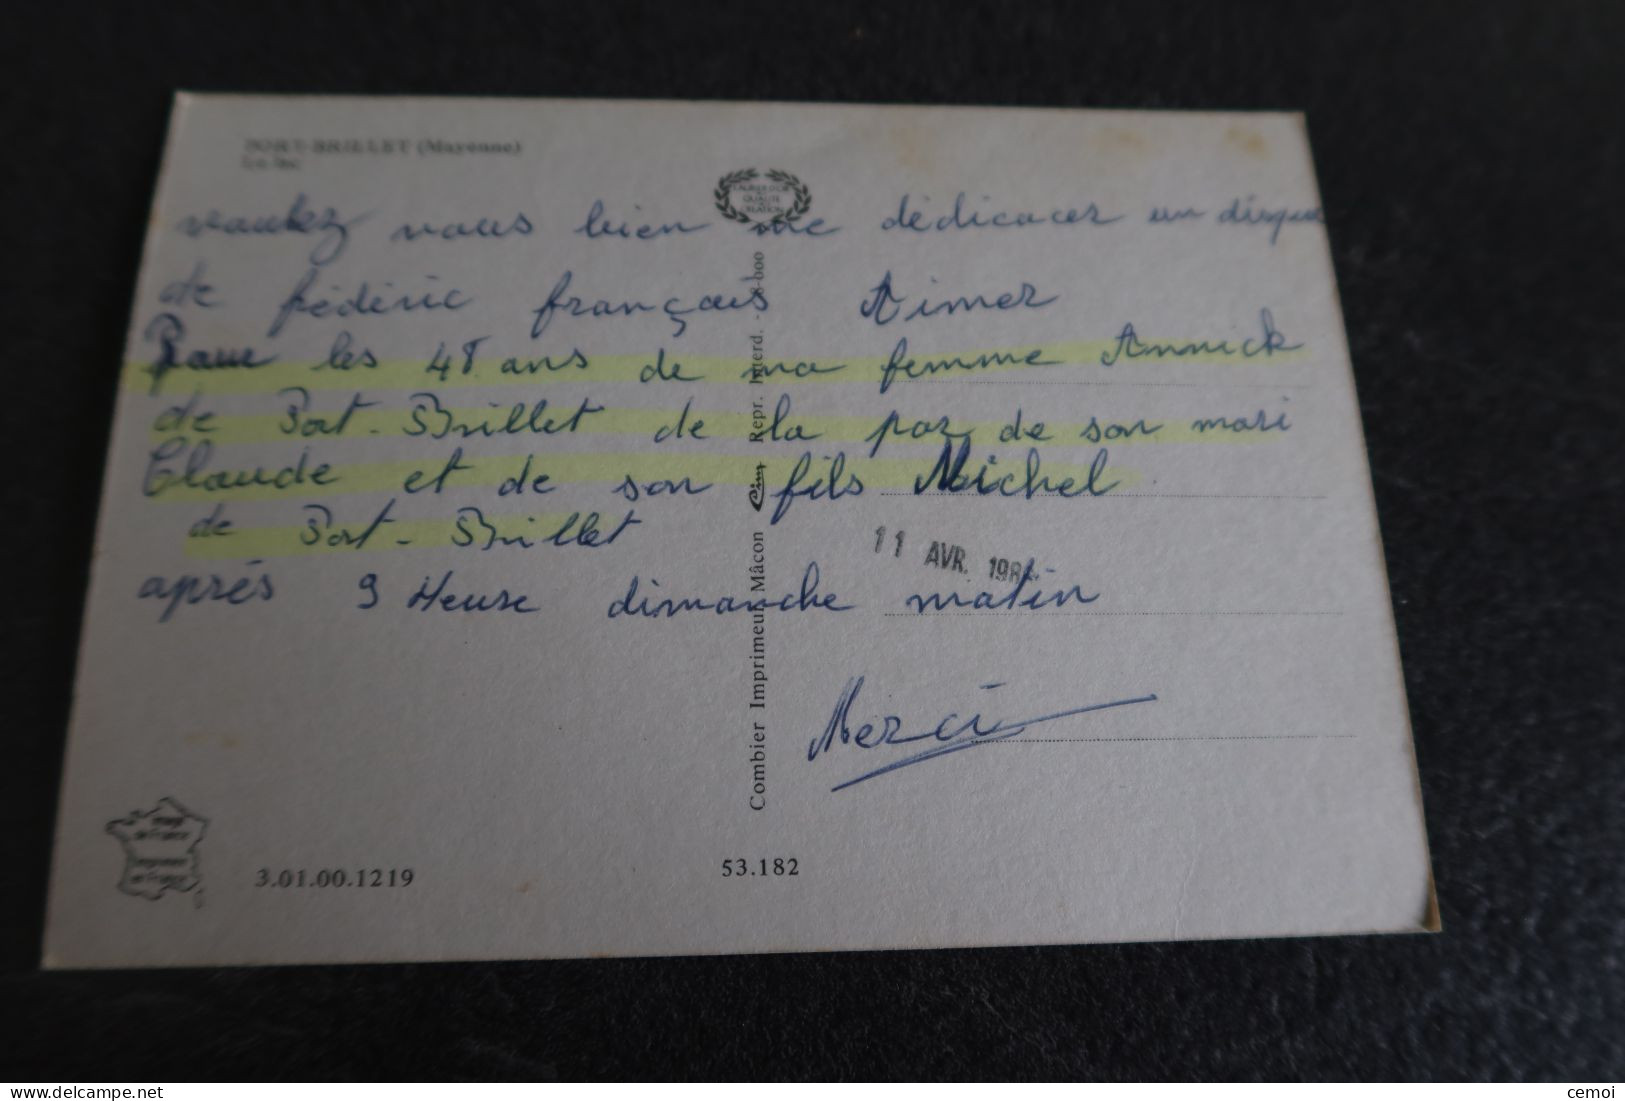 PORT-BRILLET (Mayenne)
LAURIER D'OR
QUALITÉ
CRÉATION
voulez vous bien me dédicacer un disque
de frédéric français Aimer
Pour les 48 ans de ma femme Annick
de Port-Brillet de la par de son mari
Claude et de son fils Michel
de Port-Brillet
après 9 Heure dimanche matin
11 AVR. 198
Merci
Combier Imprimeur Mâcon Cim Repr. Interd.
3.01.00.1219
53.182
cemoi